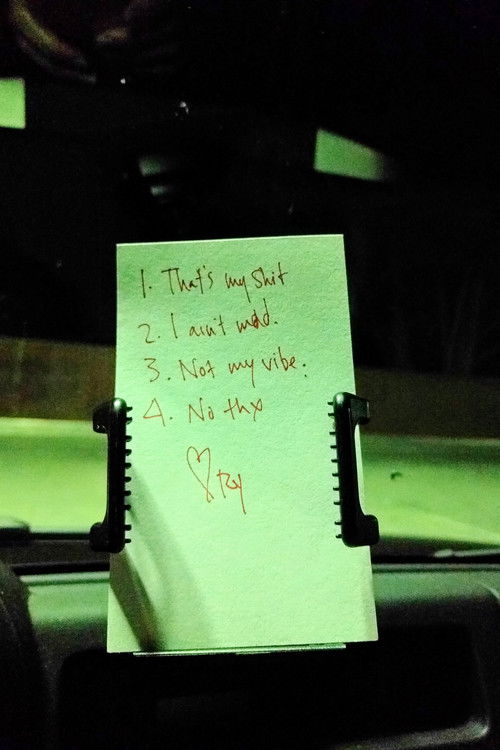 1. That's my shit
2. I ain't mad.
3. Not my vibe.
4. No thx